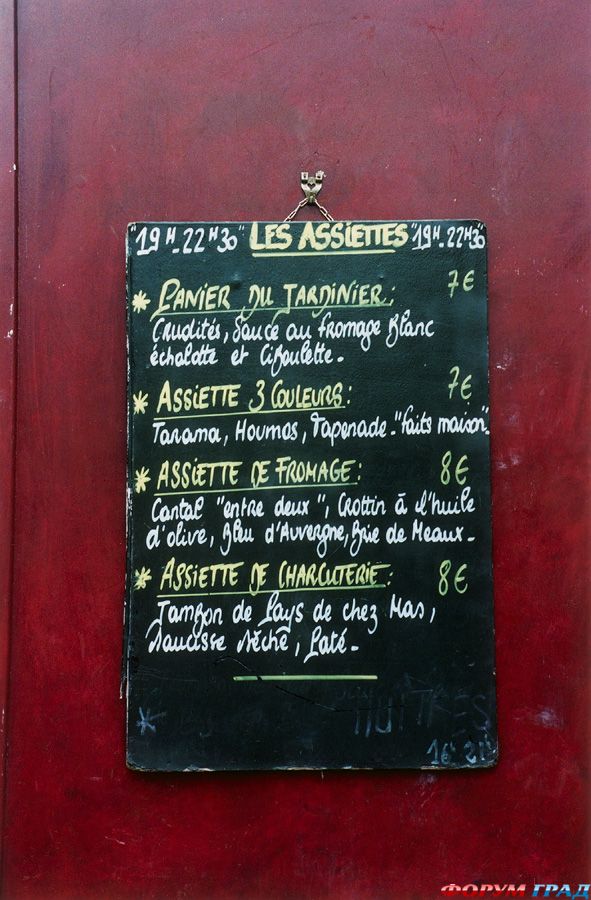 "19H-22H30" LES ASSIETTES "19H-22H30"
* PANIER DU JARDINIER: 7€
Crudités, Sauce au fromage Blanc
échalotte et Ciboulette.
* ASSIETTE 3 COULEURS: 7€
Tarama, Houmos, Tapenade-"faits maison".
* ASSIETTE DE FROMAGE: 8€
Cantal "entre deux", Crottin à l'huile
d'olive, Bleu d'Auvergne, Brie de Meaux.
* ASSIETTE DE CHARCUTERIE: 8€
Jambon de Pays de chez Mas,
Saucisse Sèche, Paté.
*
HUITRES
ФОРУМ ГРАД